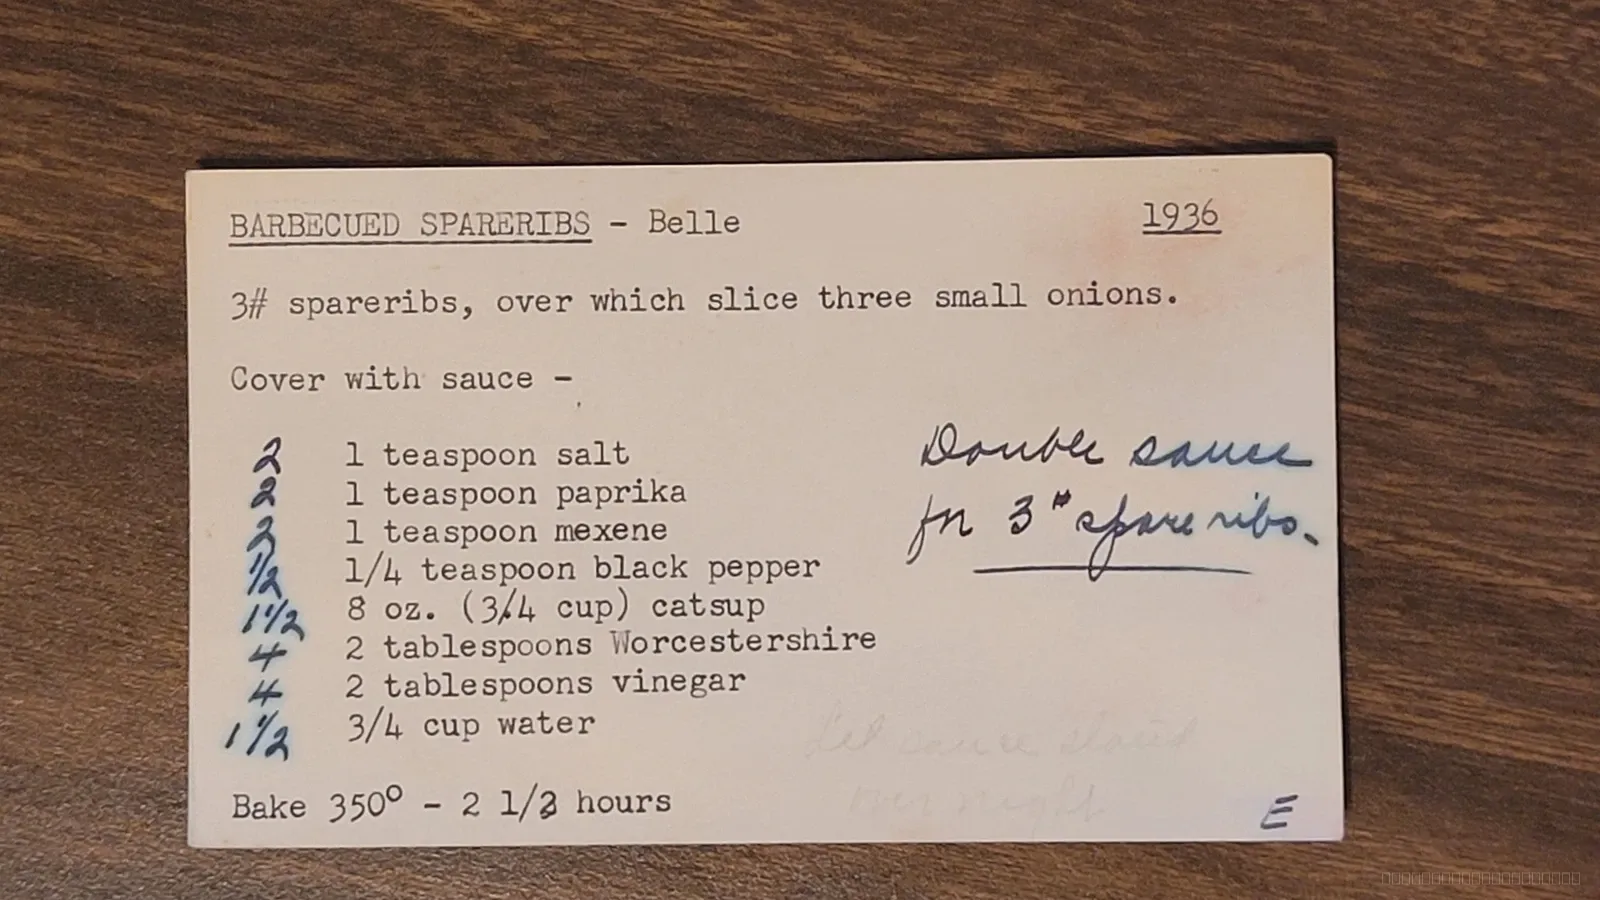 BARBECUED SPARERIBS - Belle 1936
3# spareribs, over which slice three small onions.
Cover with sauce -
2 1 teaspoon salt
2 1 teaspoon paprika
2 1 teaspoon mexene
1/2 1/4 teaspoon black pepper
1 1/2 8 oz. (3/4 cup) catsup
4 2 tablespoons Worcestershire
4 2 tablespoons vinegar
1 1/2 3/4 cup water
Double sauce
for 3# spare ribs.
Let sauce stand
over night
Bake 350° - 2 1/2 hours
E